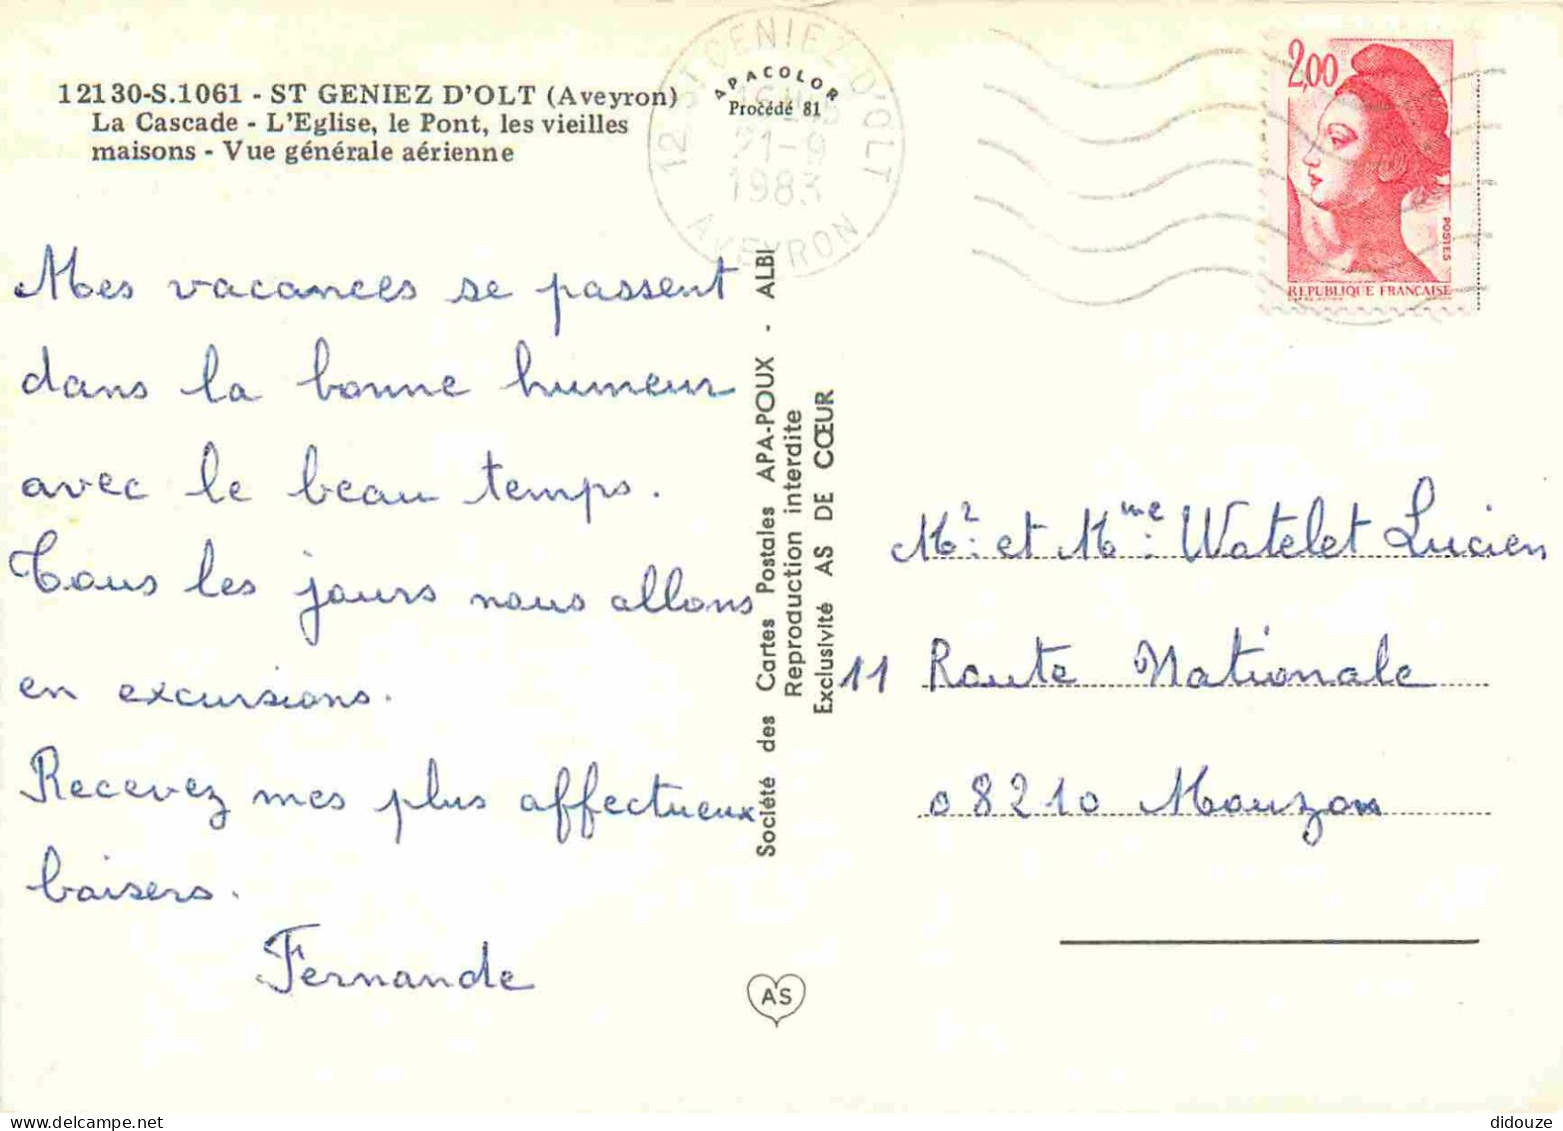 12130-S.1061 - ST GENIEZ D'OLT (Aveyron)
La Cascade - L'Eglise, le Pont, les vieilles
maisons - Vue générale aérienne
APACOLOR
Procédé 81
12 ST GENIEZ D'OLT
21-9
1983
AVEYRON
2,00
POSTES
REPUBLIQUE FRANÇAISE
Mes vacances se passent
dans la bonne humeur
avec le beau temps.
Tous les jours nous allons
en excursions.
Recevez mes plus affectueux
baisers.
Fernande
Société des Cartes Postales APA-POUX - ALBI
Reproduction interdite
Exclusivité AS DE CŒUR
AS
Mr. et Mme. Watelet Lucien
11 Route Nationale
08210 Mouzon
didouze